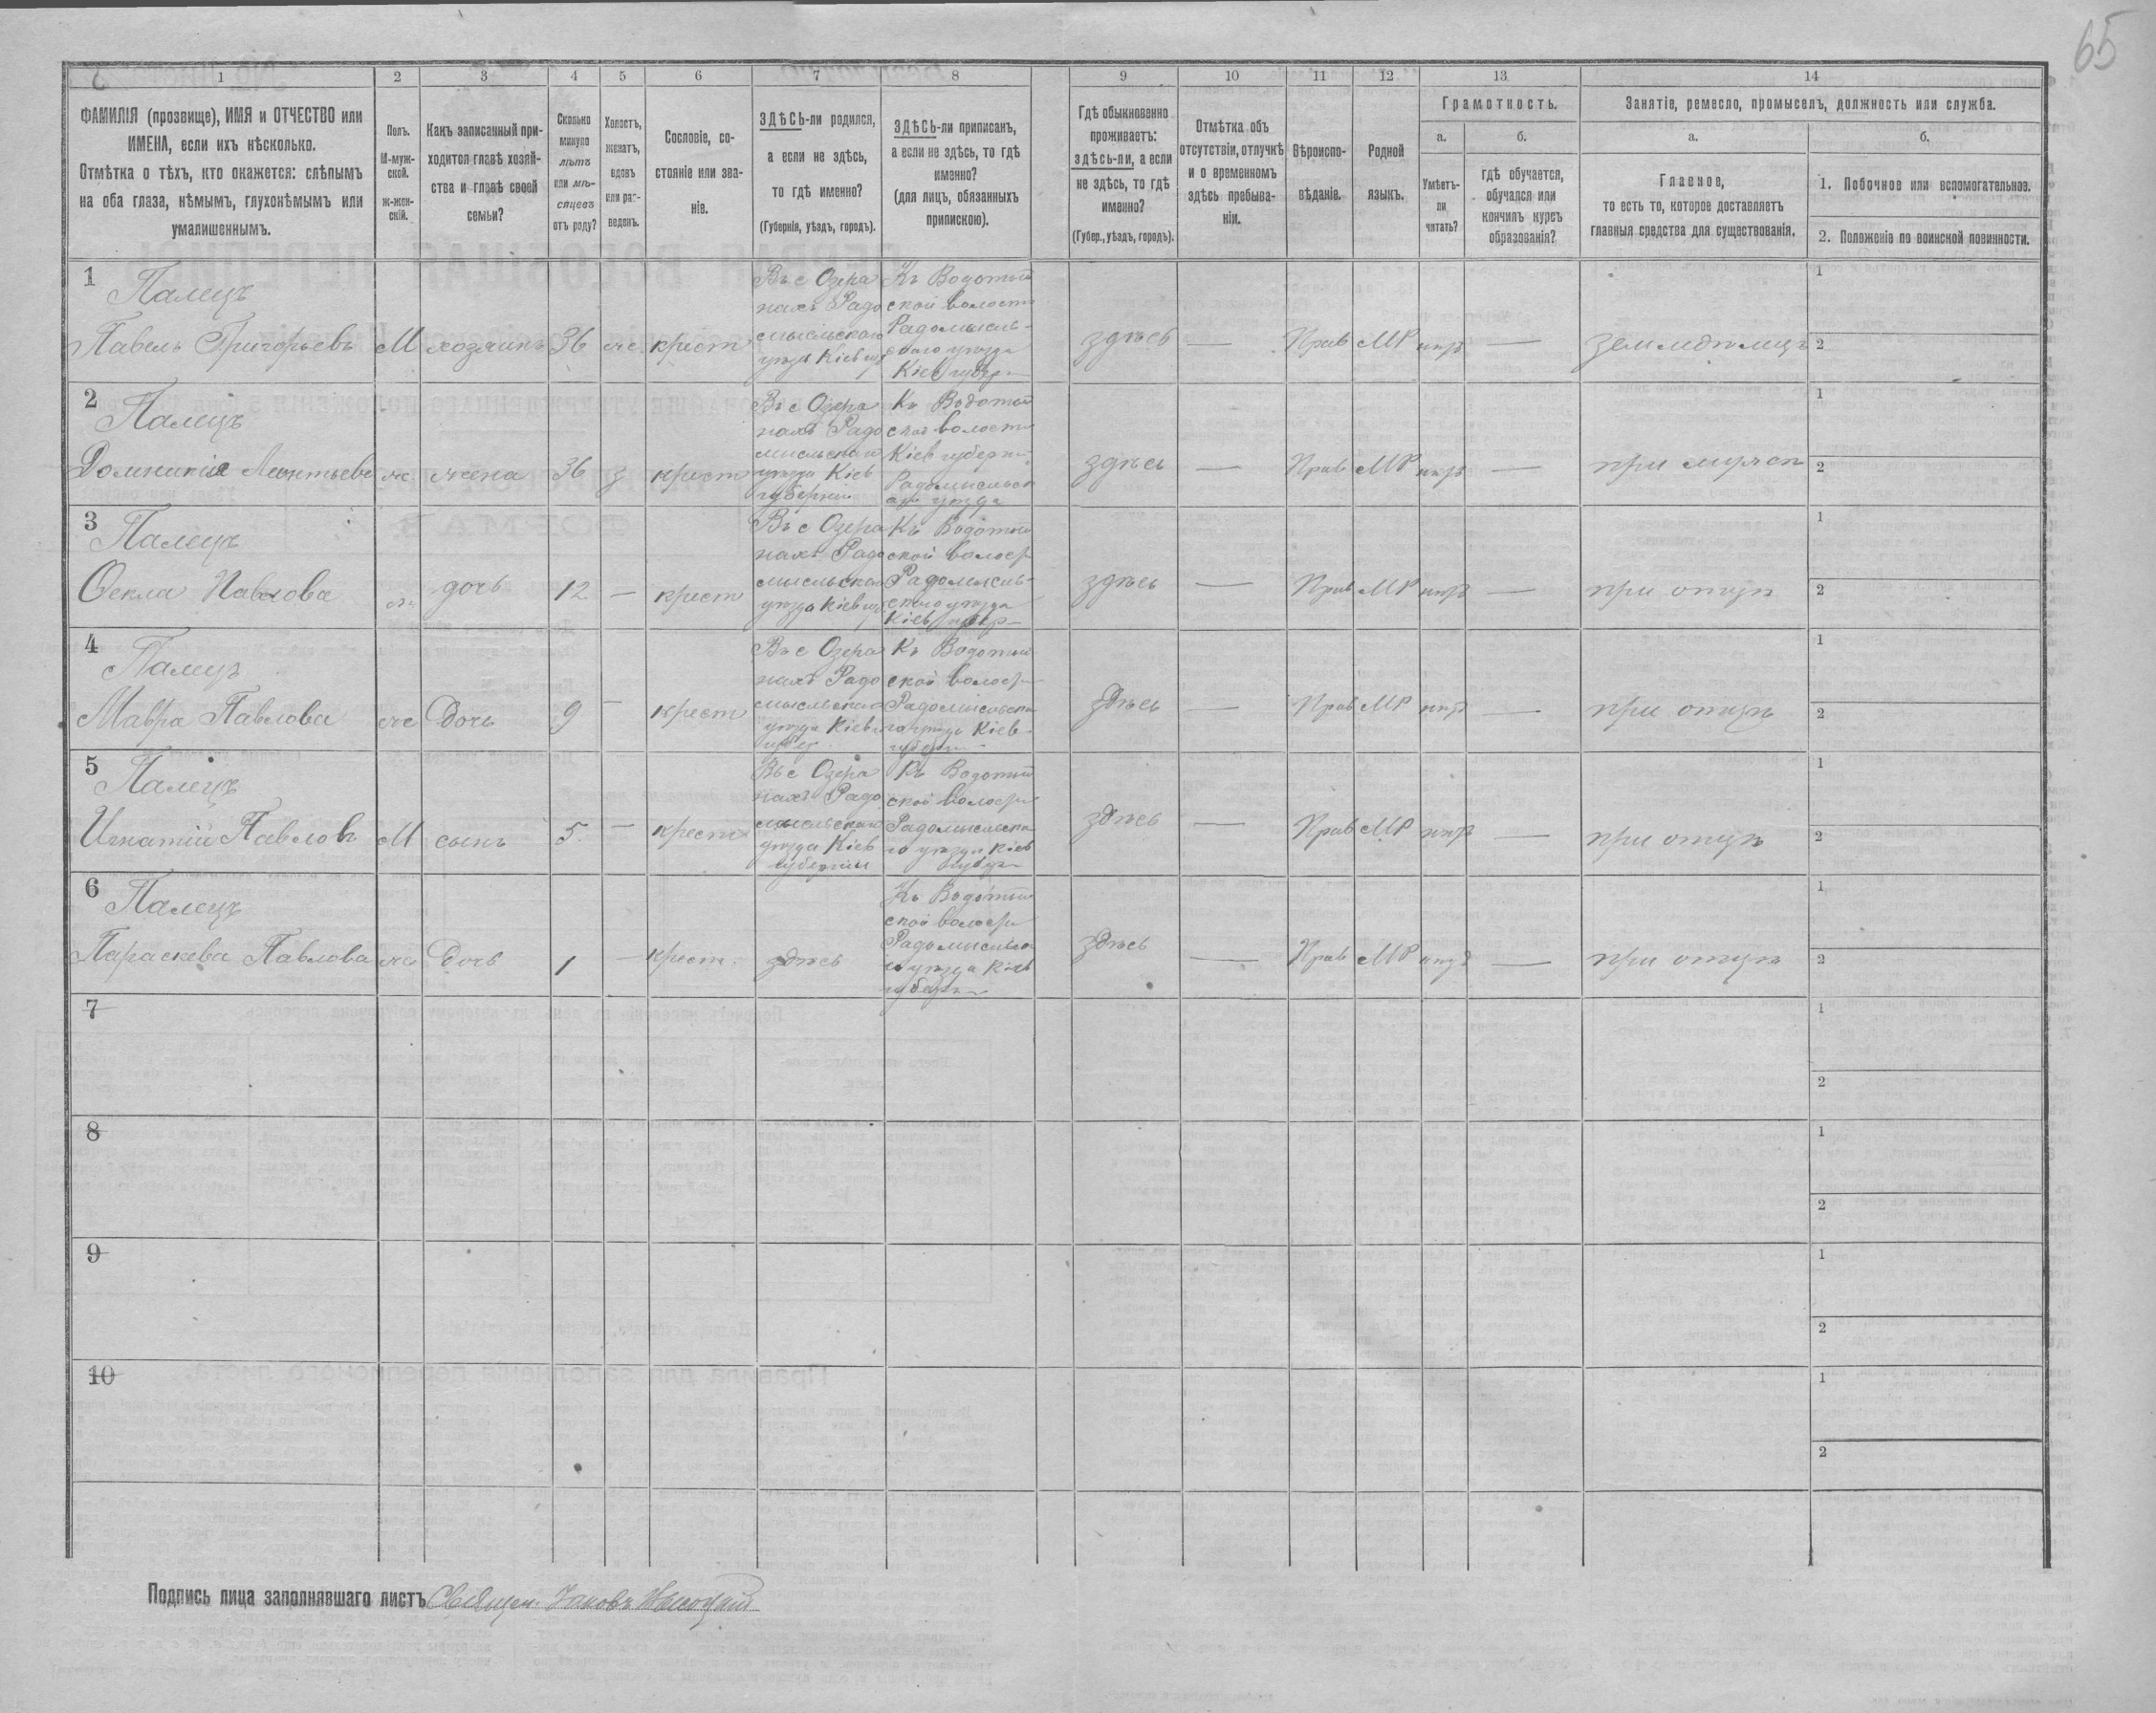 65
1
2
3
4
5
6
7
8
9
10
11
12
13
14
ФАМИЛІЯ (прозвище), ИМЯ и ОТЧЕСТВО или
ИМЕНА, если ихъ нѣсколько.
Отмѣтка о тѣхъ, кто окажется: слѣпымъ
на оба глаза, нѣмымъ, глухонѣмымъ или
умалишеннымъ.
Полъ.
М-муж-
ской.
ж-жен-
скій.
Какъ записанный при-
ходится главѣ хозяй-
ства и главѣ своей
семьи?
Сколько
минуло
лѣтъ
или мѣ-
сяцевъ
отъ роду?
Холостъ,
женатъ,
вдовъ
или раз-
веденъ.
Сословіе, со-
стояніе или зва-
ніе.
ЗДѢСЬ-ли родился,
а если не здѣсь,
то гдѣ именно?
(Губернія, уѣздъ, городъ).
ЗДѢСЬ-ли приписанъ,
а если не здѣсь, то гдѣ
именно?
(для лицъ, обязанныхъ
припискою).
Гдѣ обыкновенно
проживаетъ:
здѣсь-ли, а если
не здѣсь, то гдѣ
именно?
(Губер., уѣздъ, городъ).
Отмѣтка объ
отсутствіи, отлучкѣ
и о временномъ
здѣсь пребыва-
ніи.
Вѣроиспо-
вѣданіе.
Родной
языкъ.
Грамотность.
а.
б.
Умѣетъ-
ли
читать?
гдѣ обучается,
обучался или
кончилъ курсъ
образованія?
Занятіе, ремесло, промыселъ, должность или служба.
а.
б.
Главное,
то есть то, которое доставляетъ
главныя средства для существованія.
1. Побочное или вспомогательное.
2. Положеніе по воинской повинности.
1
Палецъ
Павелъ Григорьевъ М хозяинъ 36 ж крест
Въ с Озера
нахъ Радо
мысльскаго
уѣзда Кіев губ
Къ Водотый
ской волости
Радомысль-
скаго уѣзда
Кіев губер
здѣсь — Прав МР нѣтъ — земледѣлецъ
1
2
2
Палецъ
Домникія Леонтьева ж жена 36 з крест
Въ с Озера
нахъ Радо
мысльскаго
уѣзда Кіев
губерніи
Къ Водотый
ской волости
Кіев губерн
Радомысльск
аго уѣзда
здѣсь — Прав МР нѣтъ — при мужѣ
1
2
3
Палецъ
Ѳекла Павлова ж дочь 12 — крест
Въ с Озера
нахъ Радо
мысльскаго
уѣзда Кіев губ
Къ Водотый
ской волост
Радомысль-
скаго уѣзда
Кіев губер
здѣсь — Прав МР нѣтъ — при отцѣ
1
2
4
Палецъ
Мавра Павлова ж Дочь 9 — крест
Въ с Озера
нахъ Радо
мысльскаго
уѣзда Кіев
губер
Къ Водотый
ской волост
Радомысльска
го уѣзда Кіев
губерн
здѣсь — Прав МР нѣтъ — при отцѣ
1
2
5
Палецъ
Игнатій Павловъ М сынъ 5 — крест
Въ с Озера
нахъ Радо
мысльскаго
уѣзда Кіев
губерніи
Къ Водотый
ской волост
Радомысльска
го уѣзда Кіев
губер
здѣсь — Прав МР нѣтъ — при отцѣ
1
2
6
Палецъ
Параскева Павлова ж Дочь 1 — крест. здѣсь
Къ Водотый
ской волост
Радомысльска
го уѣзда Кіев
губерн
здѣсь — Прав МР нѣтъ — при отцѣ
1
2
7
1
2
8
1
2
9
1
2
10
1
2
Подпись лица заполнявшаго листъ Священ. Іаковъ